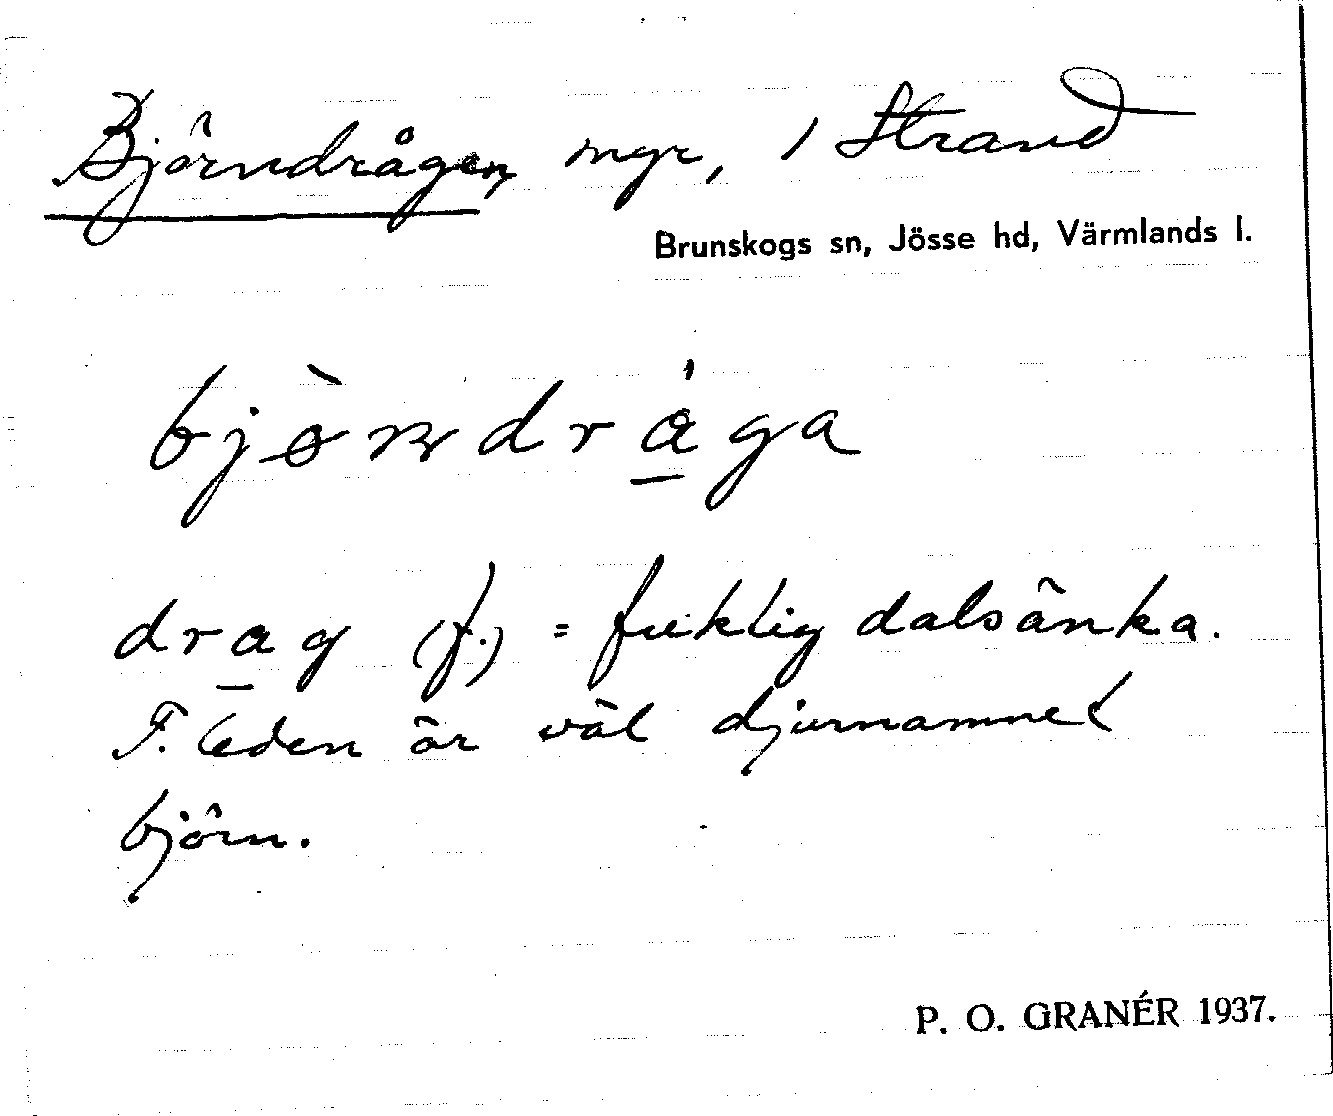 Björndrågen, myr, 1 Strand
Brunskogs sn, Jösse hd, Värmlands l.
bjø̀ɳdrǻ̲ga
dra̲g (f.) = fuktig dalsänka.
F. leden är väl djurnamnet
björn.
P. O. GRANÉR 1937.